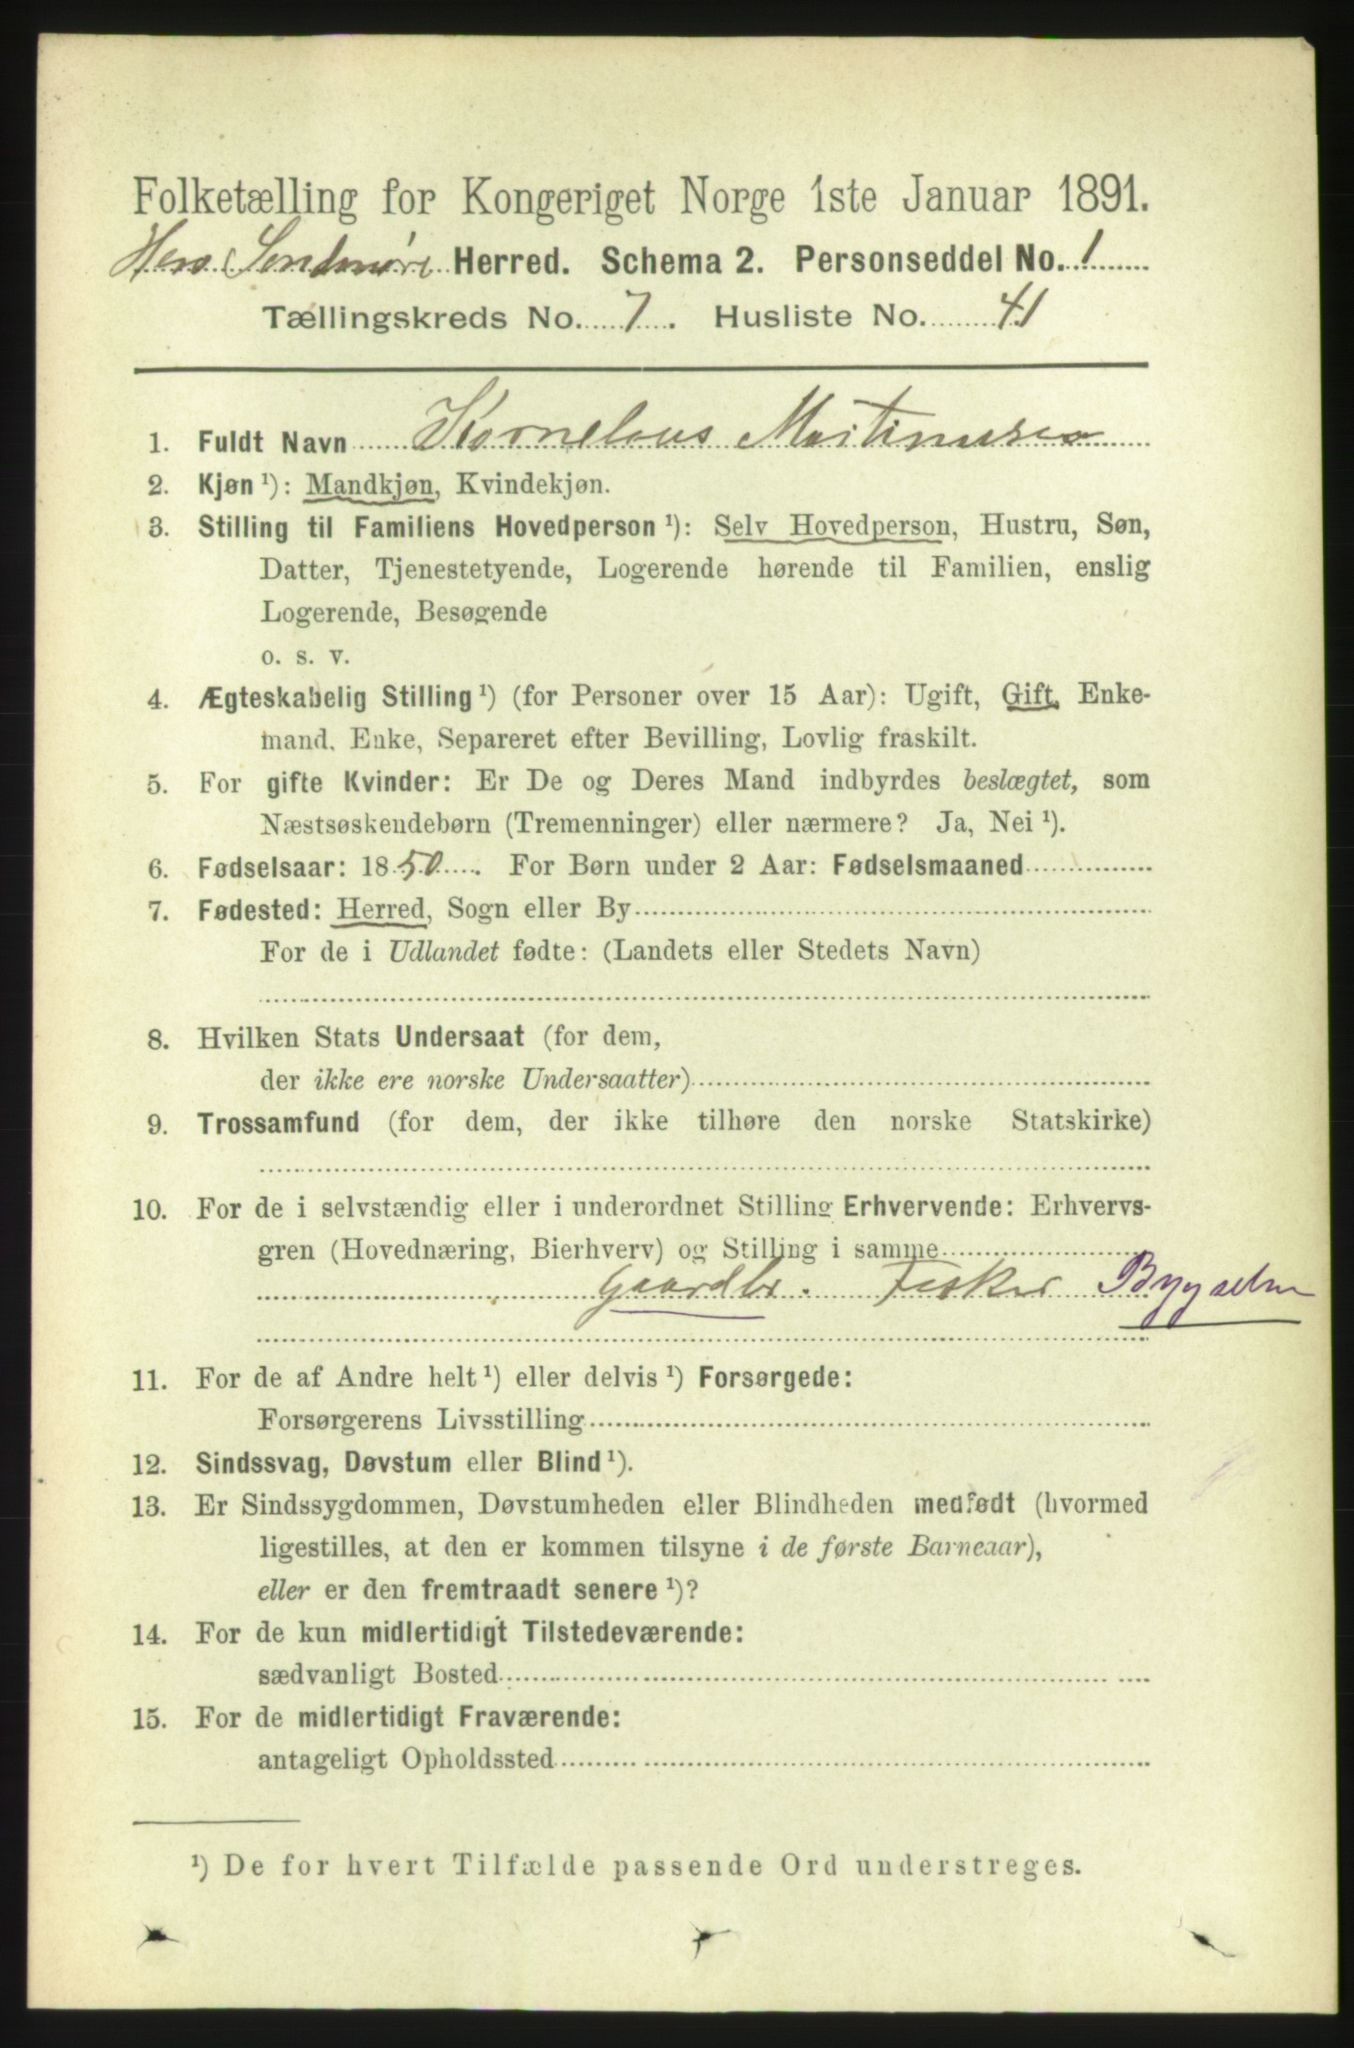 Folketælling for Kongeriget Norge 1ste Januar 1891.
Herø Søndmøre Herred. Schema 2. Personseddel No. 1
Tællingskreds No. 7. Husliste No. 41
1. Fuldt Navn Kornelius Martinusen
2. Kjøn ¹): Mandkjøn, Kvindekjøn.
3. Stilling til Familiens Hovedperson ¹): Selv Hovedperson, Hustru, Søn,
Datter, Tjenestetyende, Logerende hørende til Familien, enslig
Logerende, Besøgende
o. s. v.
4. Ægteskabelig Stilling ¹) (for Personer over 15 Aar): Ugift, Gift, Enke-
mand, Enke, Separeret efter Bevilling, Lovlig fraskilt.
5. For gifte Kvinder: Er De og Deres Mand indbyrdes beslægtet, som
Næstsøskendebørn (Tremenninger) eller nærmere? Ja, Nei ¹).
6. Fødselsaar: 1850. For Børn under 2 Aar: Fødselsmaaned
7. Fødested: Herred, Sogn eller By
For de i Udlandet fødte: (Landets eller Stedets Navn)
8. Hvilken Stats Undersaat (for dem,
der ikke ere norske Undersaatter)
9. Trossamfund (for dem, der ikke tilhøre den norske Statskirke)
10. For de i selvstændig eller i underordnet Stilling Erhvervende: Erhvervs-
gren (Hovednæring, Bierhverv) og Stilling i samme
Gaardbr. Fisker
11. For de af Andre helt ¹) eller delvis ¹) Forsørgede:
Forsørgerens Livsstilling
12. Sindssvag, Døvstum eller Blind ¹).
13. Er Sindssygdommen, Døvstumheden eller Blindheden medfødt (hvormed
ligestilles, at den er kommen tilsyne i de første Barneaar),
eller er den fremtraadt senere ¹)?
14. For de kun midlertidigt Tilstedeværende:
sædvanligt Bosted
15. For de midlertidigt Fraværende:
antageligt Opholdssted
¹) De for hvert Tilfælde passende Ord understreges.